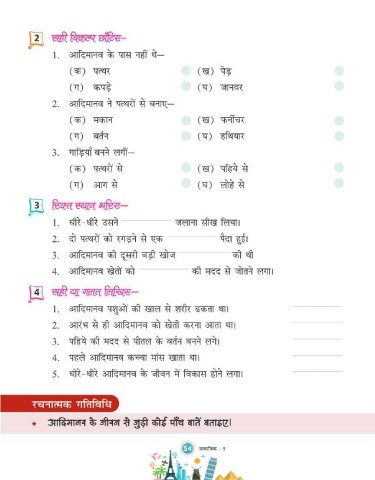 2 सही विकल्प छाँटिए–
1. आदिमानव के पास नहीं थे–
(क) पत्थर (ख) पेड़
(ग) कपड़े (घ) जानवर
2. आदिमानव ने पत्थरों से बनाए–
(क) मकान (ख) फर्नीचर
(ग) बर्तन (घ) हथियार
3. गाड़ियाँ बनने लगीं–
(क) पत्थरों से (ख) पहिये से
(ग) आग से (घ) लोहे से
3 रिक्त स्थान भरिए–
1. धीरे-धीरे उसने जलाना सीख लिया।
2. दो पत्थरों को रगड़ने से एक पैदा हुई।
3. आदिमानव की दूसरी बड़ी खोज की थी
4. आदिमानव खेतों को की मदद से जोतने लगा।
4 सही या गलत लिखिए–
1. आदिमानव पशुओं की खाल से शरीर ढकता था।
2. आरंभ से ही आदिमानव को खेती करना आता था।
3. पहिये की मदद से पीतल के बर्तन बनने लगे।
4. पहले आदिमानव कच्चा मांस खाता था।
5. धीरे-धीरे आदिमानव के जीवन में विकास होने लगा।
रचनात्मक गतिविधि
• आदिमानव के जीवन से जुड़ी कोई पाँच बातें बताइए।
54 सामाजिक – 1